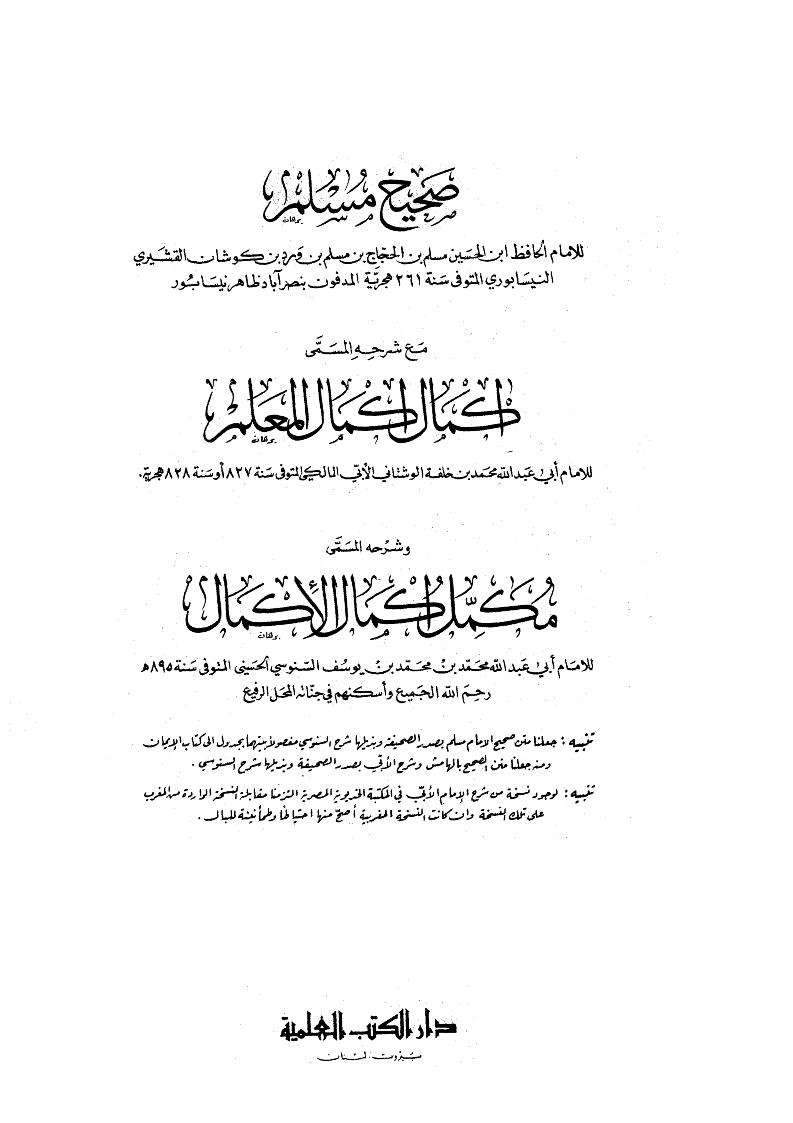 صحيح مسلم
برهان
للامام الحافظ ابن الحسين مسلم بن الحجاج بن مسلم بن ورد بن كوشان القشيري
النيسابوري المتوفى سنة ٢٦١ هجرية المدفون بنصر آباد ظاهر نيسابور
مع شرحه المسمى
اكمال اكمال المعلم
برهان
للامام أبي عبد الله محمد بن خلفة الوشتاني الأبي المالكي المتوفى سنة ٨٢٧ أو سنة ٨٢٨ هجرية.
وشرحه المسمى
مكمل اكمال الأكمال
برهان
للامام أبي عبد الله محمد بن محمد بن يوسف السنوسي الحسيني المتوفى سنة ٨٩٥ه
رحم الله الجميع وأسكنهم في جناته المحل الرفيع
تنبيه : جعلنا متن صحيح الامام مسلم بصدر الصحيفة وبذيلها شرح السنوسي مفصولاً بينهما بجدول الى كتاب الإيمان
ومنه جعلنا متن الصحيح بالهامش وشرح الأبي بصدر الصحيفة وبذيلها شرح السنوسي .
تنبيه : لوجود نسخة من شرح الإمام الأبي في المكتبة الخديوية المصرية التزمنا مقابلة النسخة الواردة من المغرب
على تلك النسخة وان كانت النسخة المغربية أصح منها احتياطا وطمأنينة للبال .
دار الكتب العلمية
بيروت - لبنان